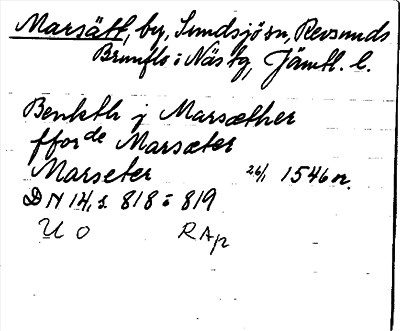 Marsätt, by, Sundsjö sn, Revsunds
Brunflo i Näs tg, Jämtl. l.
Benkth j Marsæther
ffor de Marsæter
Marseter 26/1 1546 n.
DN 14, s. 818 o 819
U O RAp